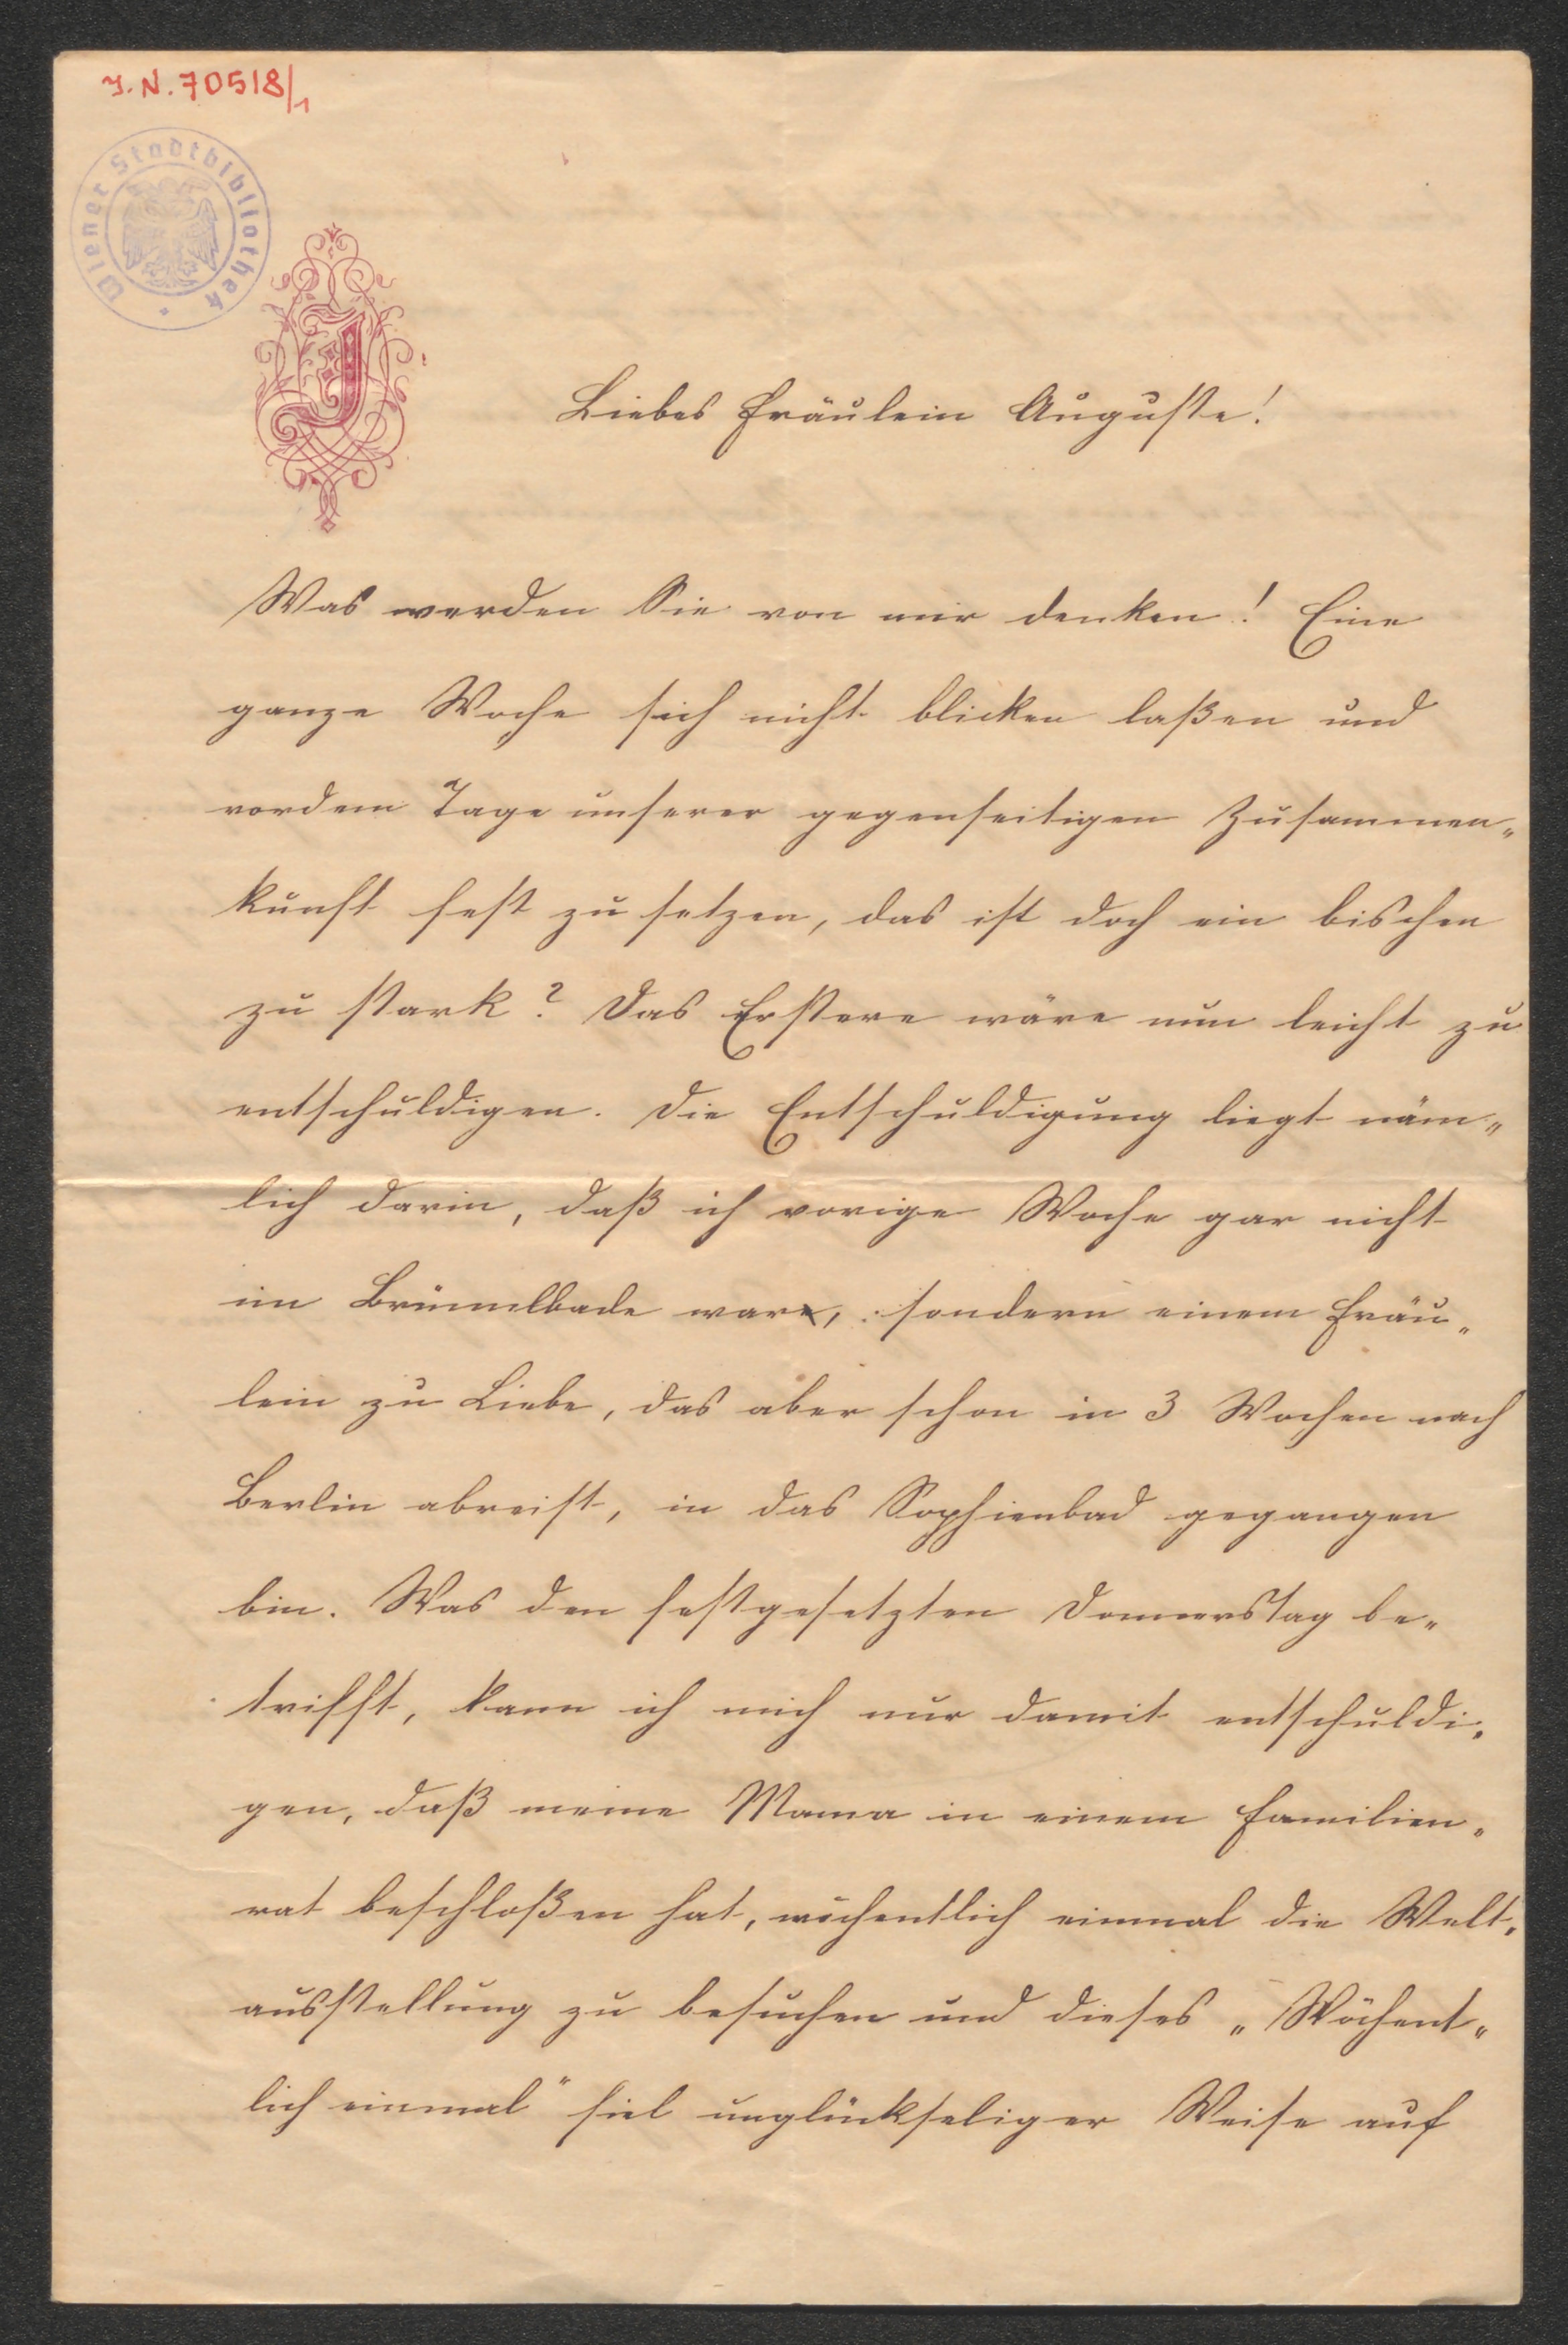 J. N. 70518/1
Wiener Stadtbibliothek
J
Liebes Fräulein Auguste!
Was werden Sie von mir denken! Eine
ganze Woche sich nicht blicken laßen und
vordem Tage unserer gegenseitigen Zusammen„
kunft fest zu setzen, das ist doch ein bischen
zu stark? Das Erstere wäre nun leicht zu
entschuldigen. Die Entschuldigung liegt näm„
lich darin, daß ich vorige Woche gar nicht
im Brünnlbade war, sondern einem Fräu„
lein zu Liebe, das aber schon in 3 Wochen nach
Berlin abreist, in das Sophienbad gegangen
bin. Was den festgesetzten Donnerstag be„
trifft, kann ich mich nur damit entschuldi„
gen, daß meine Mama in einem Familien„
rat beschloßen hat, wöchentlich einmal die Welt„
ausstellung zu besuchen und dieses „Wöchent„
lich einmal" fiel unglückseliger Weise auf